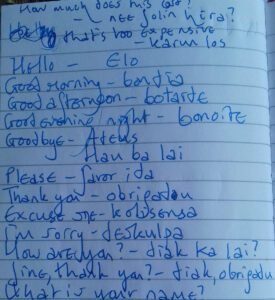 How much does this cost?
- NEE folin hira?
that's too EXPENSIVE
- Karun los
Hello - Elo
Good Morning - bondia
Good afternoon - botarde
Good evening night - bonoite
Goodbye - Adeus
Hau ba lai
Please - favor ida
Thank you - obrigadau
Excuse me - kolisensa
I'm sorry - deskulpa
How are you? - diak ka lai?
fine, thank you? - diak, obrigadu
What is your name?